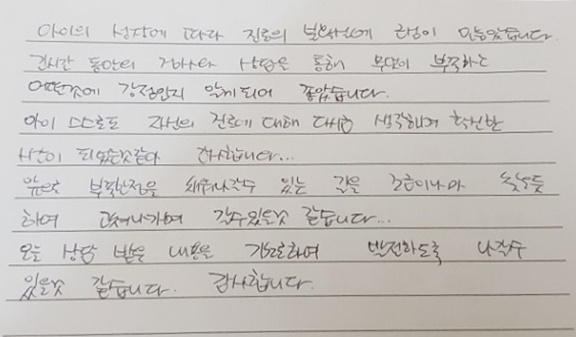 아이의 성장에 따라 진로의 관심이 많았습니다.
긴시간 동안의 검사와 상담을 통해 무엇이 부족하고
어떤것에 강점인지 알게되어 좋았습니다.
아이 스스로도 자신의 진로에 대해 다시금 생각하게 확신한
시간이 되었을것같다 감사합니다...
앞으로 부족한점을 채워나갈수 있는 길을 조금이나마
하여 갈수있을것 같습니다...
오늘 상담 받은 내용은 기초로하여 발전하도록 나갈수
있을것 같습니다. 감사합니다.